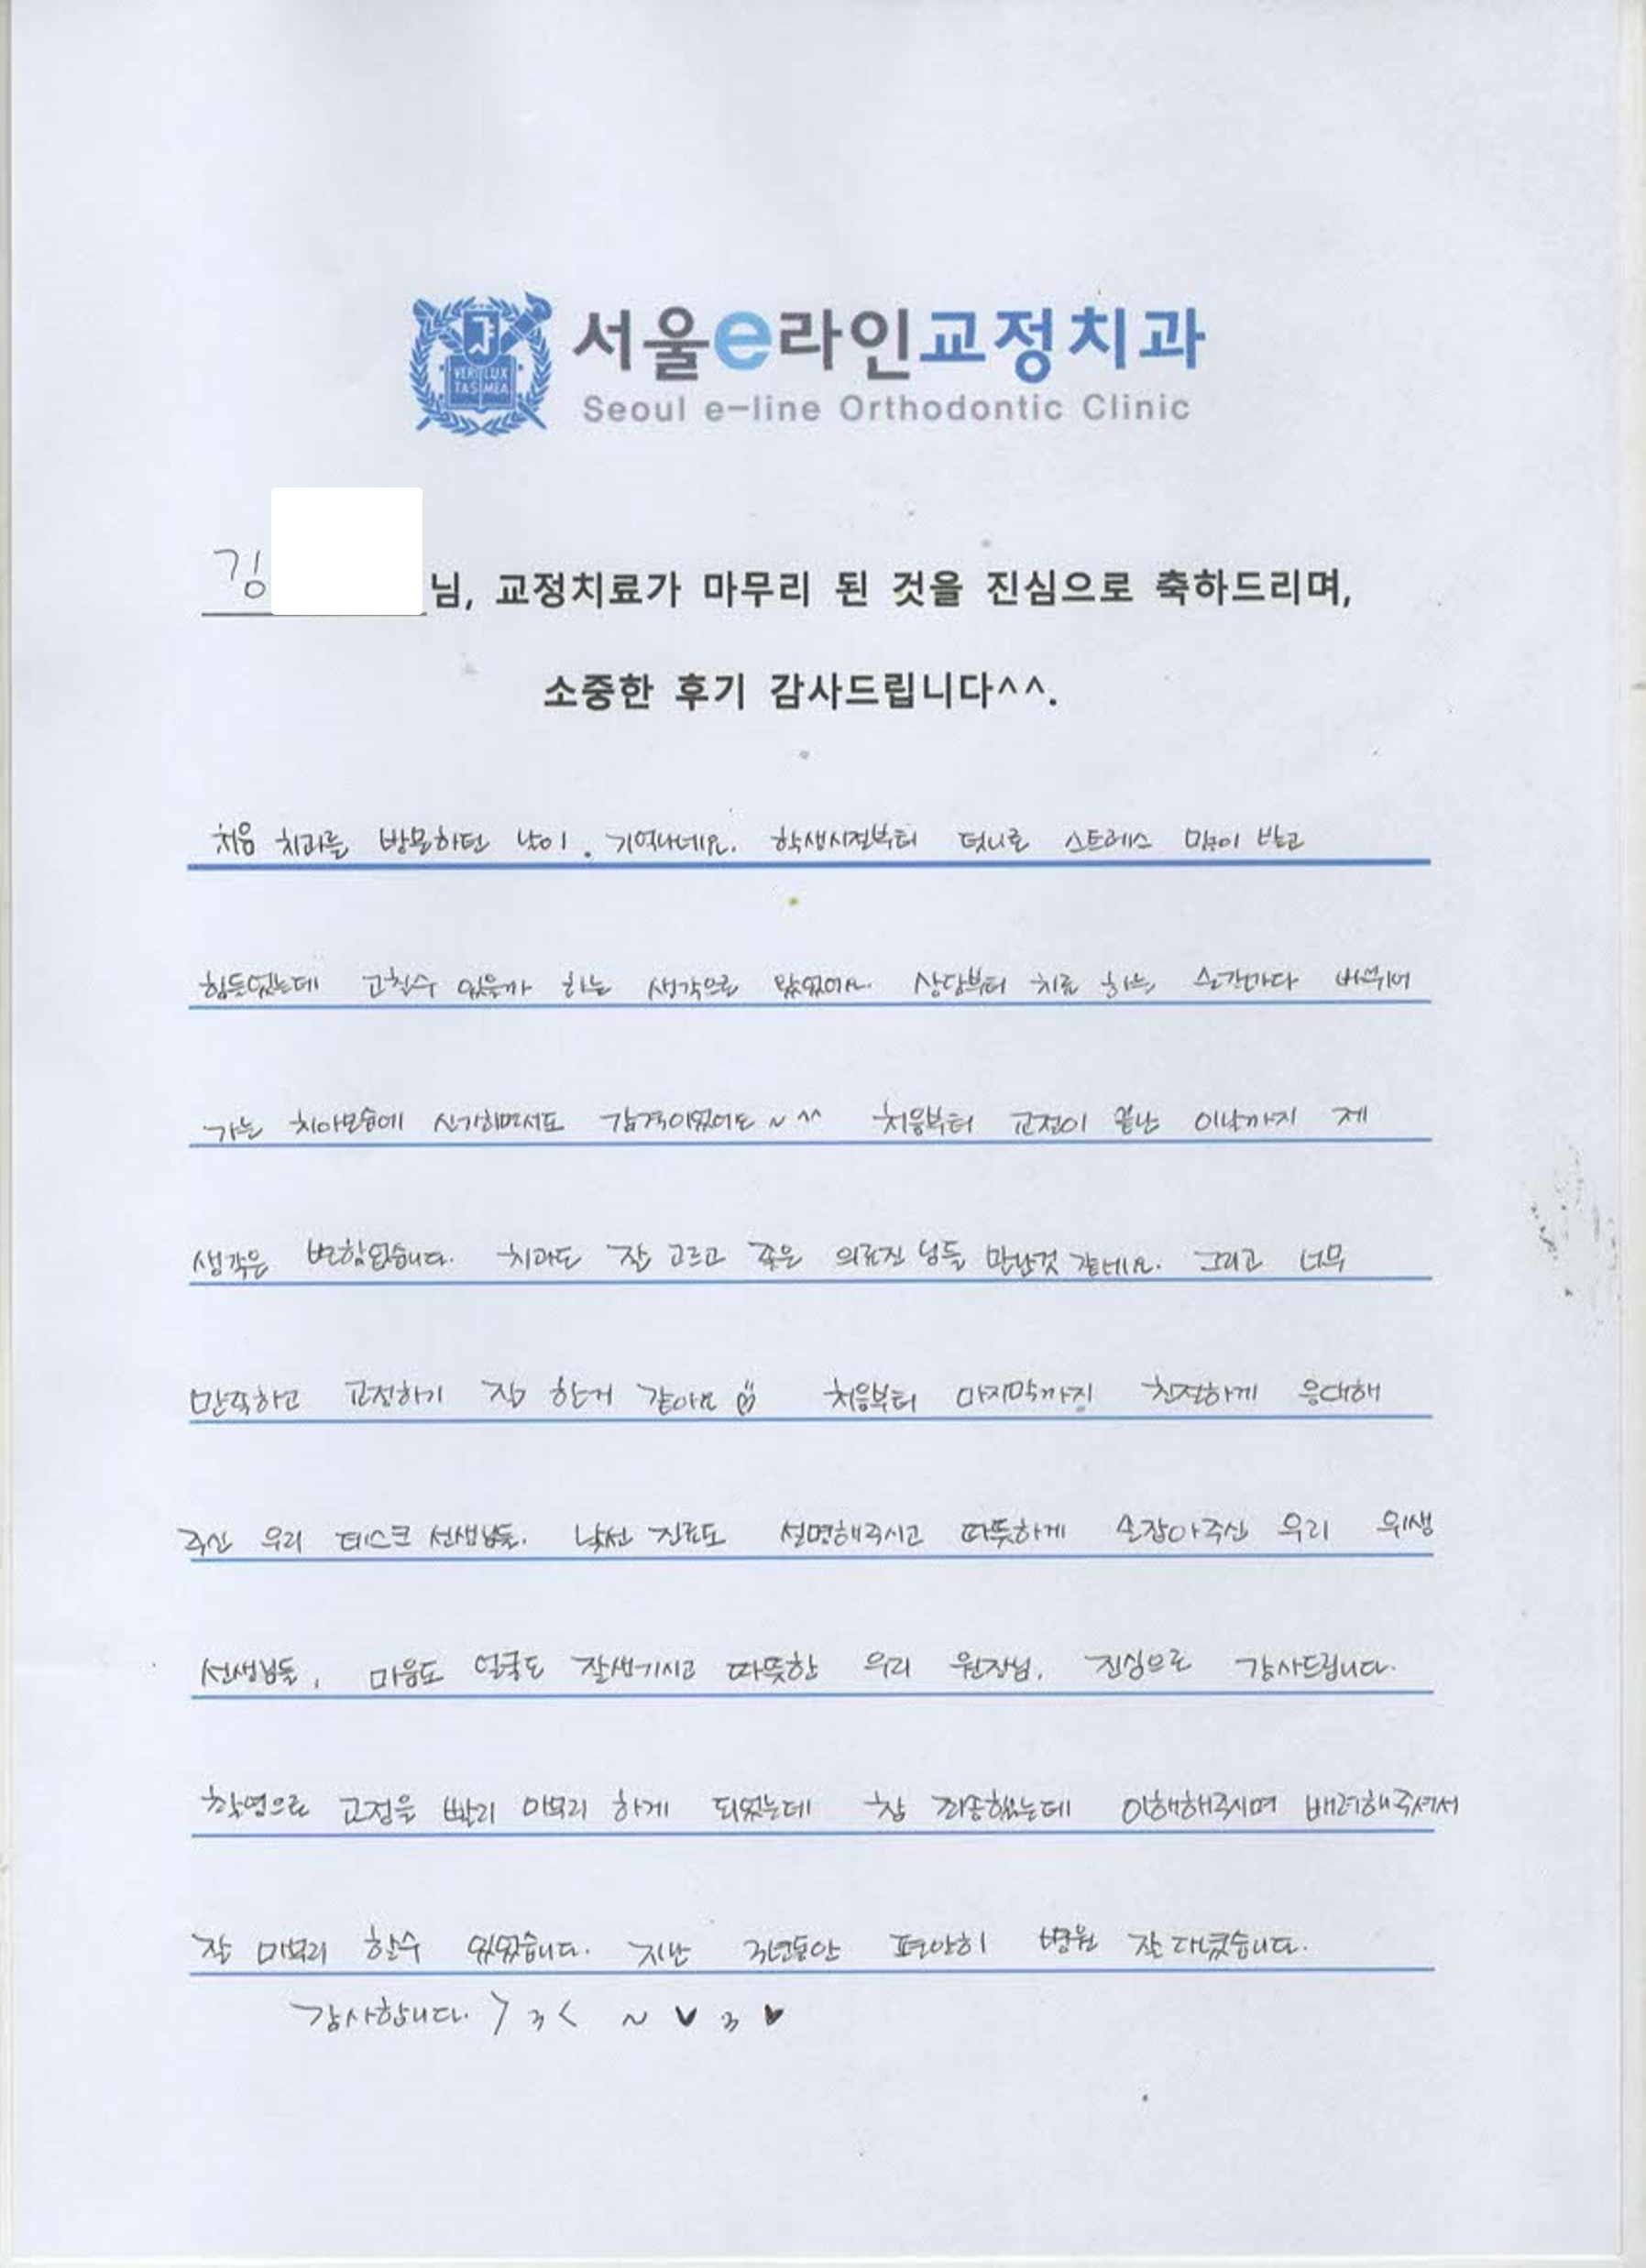 VERI LUX
TAS MEA
서울e라인교정치과
Seoul e-line Orthodontic Clinic
김 님, 교정치료가 마무리 된 것을 진심으로 축하드리며,
소중한 후기 감사드립니다^^.
처음 치과를 방문하던 날이. 기억나네요. 학생시절부터 덧니로 스트레스 많이 받고
힘들었는데 고칠수 있을까 하는 생각으로 왔었어요. 상담부터 치료 하는 순간마다 바뀌어
가는 치아모습에 신기하면서도 감격이였어요 ~ ^^ 처음부터 교정이 끝난 이날까지 제
생각은 변함없습니다. 치과도 잘 고르고 좋은 의료진 님들 만난것 같네요. 그리고 너무
만족하고 교정하기 잘 한거 같아요 처음부터 마지막까지 친절하게 응대해
주신 우리 데스크 선생님들. 낯선 진료도 설명해주시고 따뜻하게 손잡아주신 우리 위생
선생님들, 마음도 얼굴도 잘생기시고 따뜻한 우리 원장님. 진심으로 감사드립니다.
학업으로 교정을 빨리 마무리 하게 되었는데 참 죄송했는데 이해해주시며 배려해주셔서
잘 마무리 할수 있었습니다. 지난 3년동안 편안히 병원 잘 다녔습니다.
감사합니다. >3< ~ ♥ 3 ♥